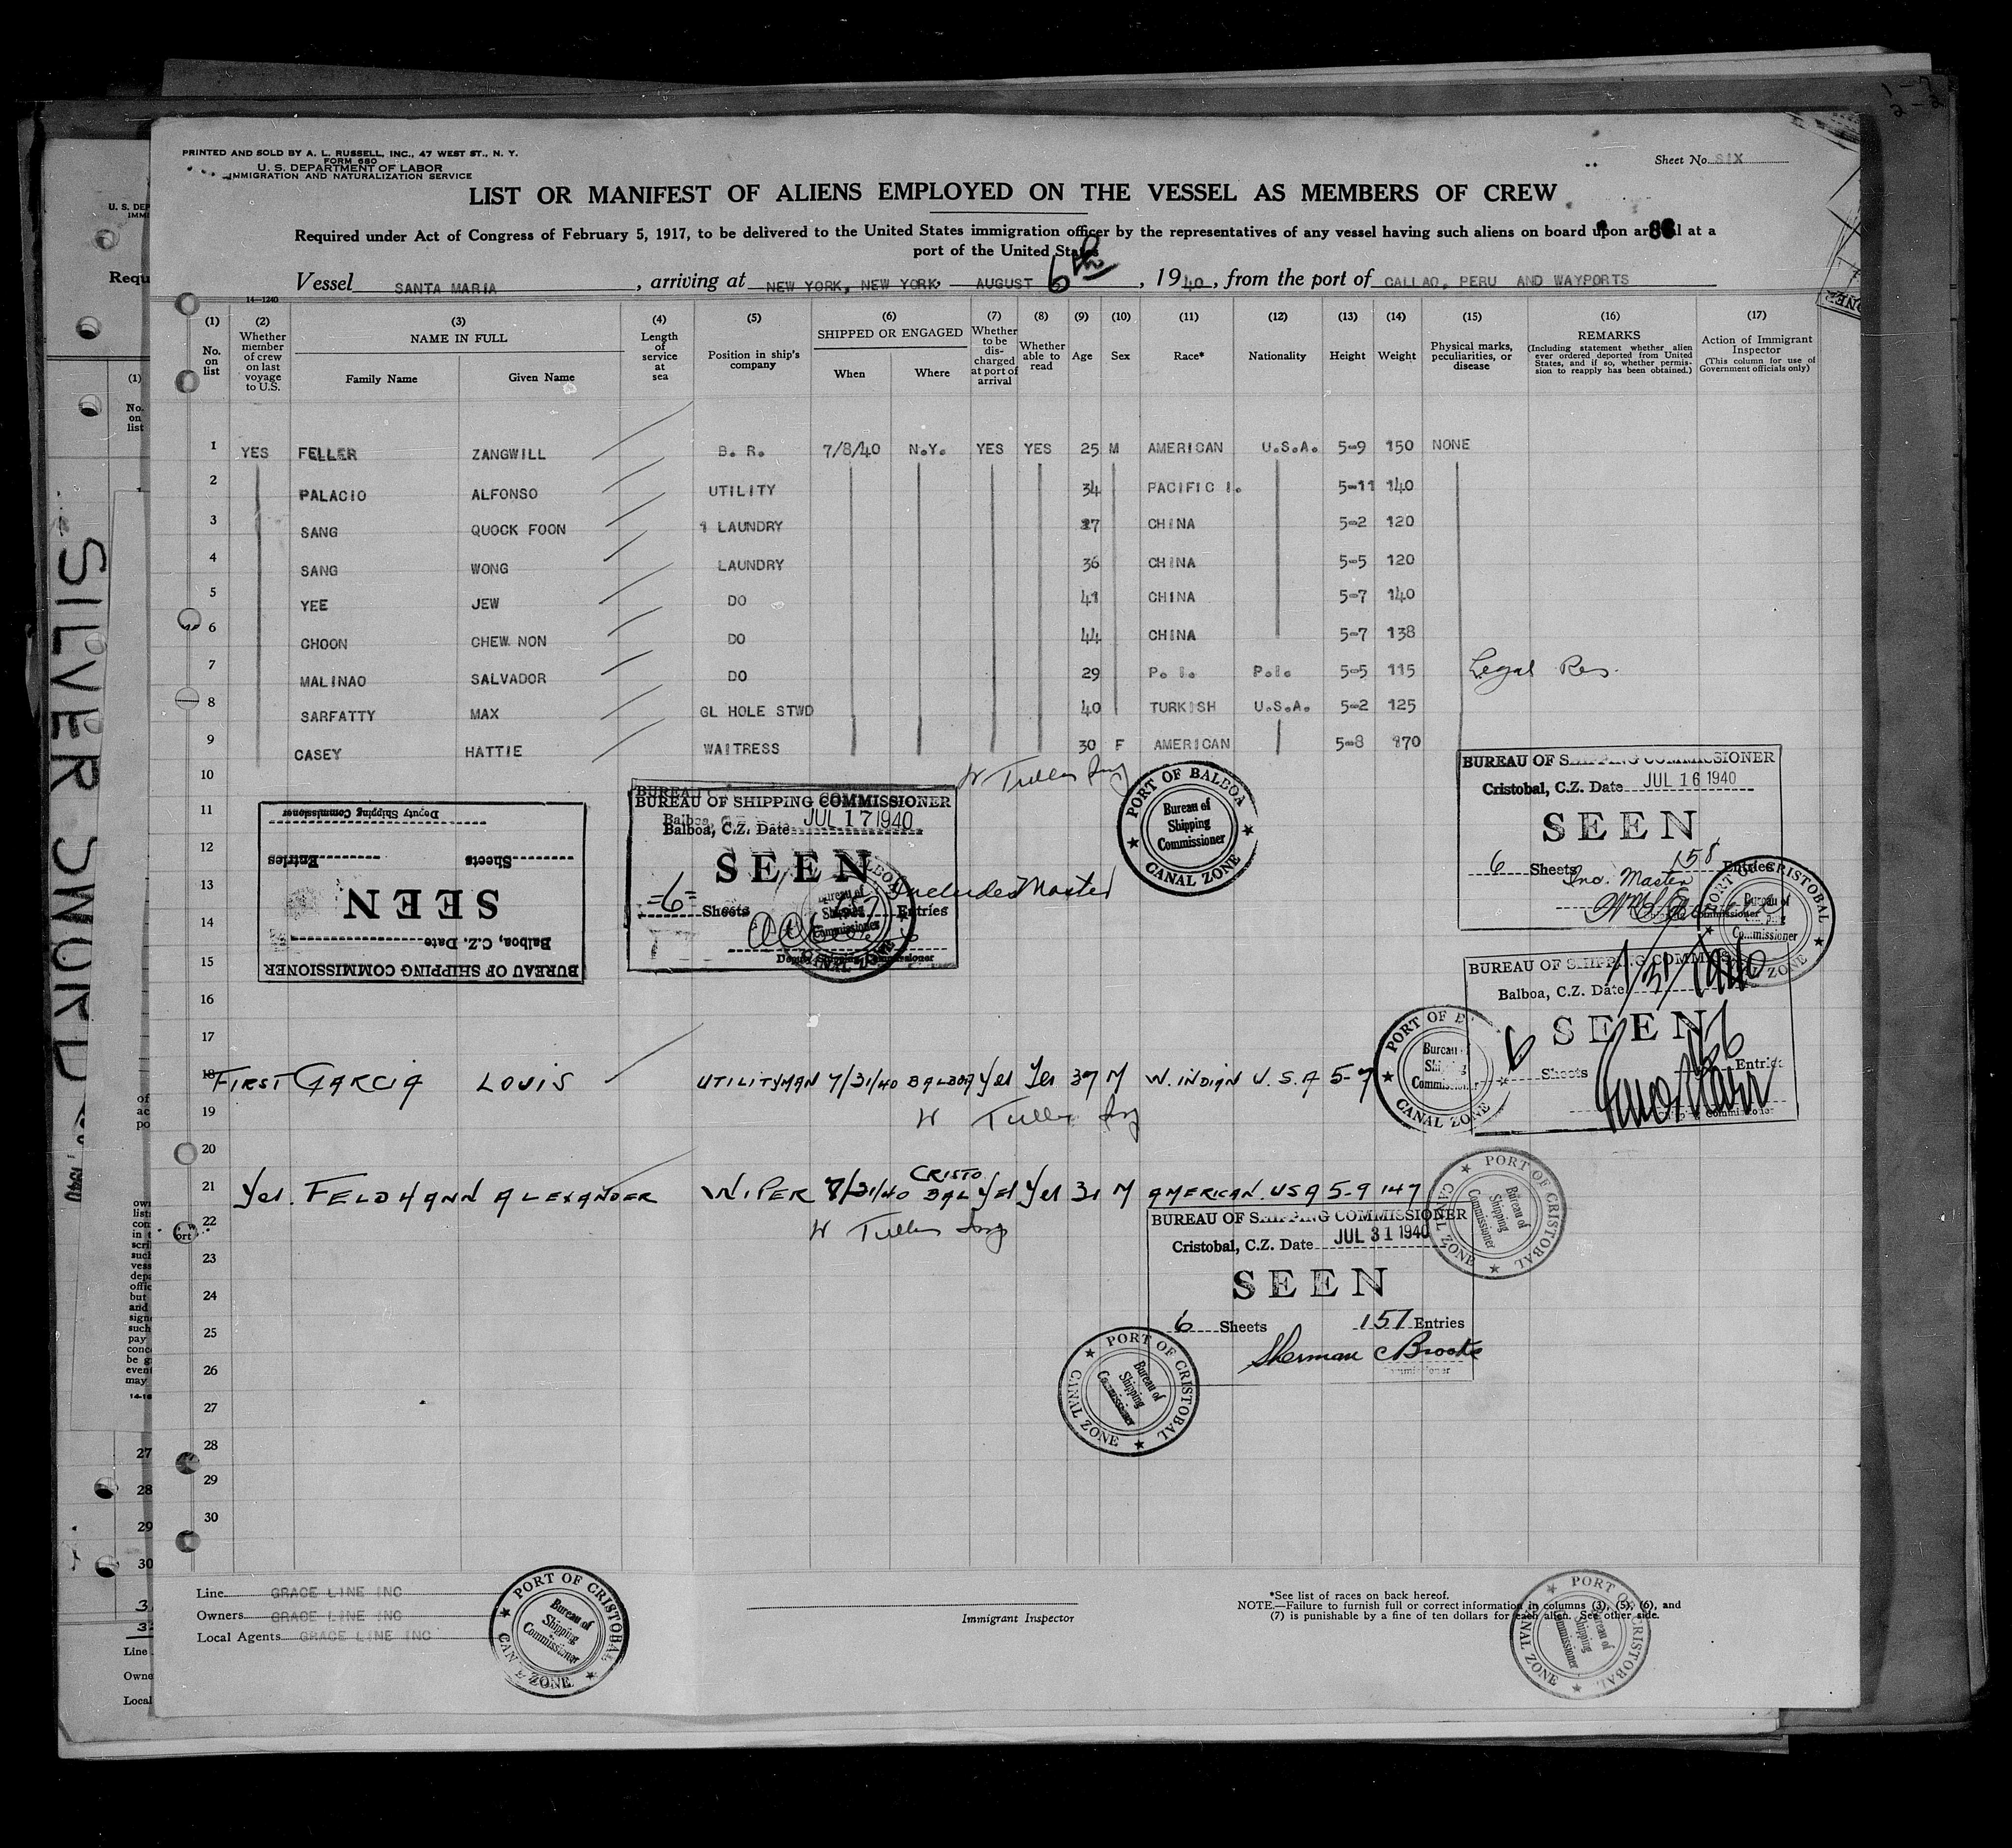 PRINTED AND SOLD BY A. L. RUSSELL, INC., 47 WEST ST., N. Y.
FORM 680
U. S. DEPARTMENT OF LABOR
IMMIGRATION AND NATURALIZATION SERVICE
Sheet No. SIX
LIST OR MANIFEST OF ALIENS EMPLOYED ON THE VESSEL AS MEMBERS OF CREW
Required under Act of Congress of February 5, 1917, to be delivered to the United States immigration officer by the representatives of any vessel having such aliens on board upon arrival at a
port of the United States
Vessel SANTA MARIA, arriving at NEW YORK, NEW YORK, AUGUST 6th, 1940, from the port of CALLAO, PERU AND WAYPORTS
14-1240
(1) No. on list
(2) Whether member of crew on last voyage to U.S.
(3) NAME IN FULL Family Name Given Name
(4) Length of service at sea
(5) Position in ship's company
(6) SHIPPED OR ENGAGED When Where
(7) Whether to be discharged at port of arrival
(8) Whether able to read
(9) Age
(10) Sex
(11) Race*
(12) Nationality
(13) Height
(14) Weight
(15) Physical marks, peculiarities, or disease
(16) REMARKS (Including statement whether alien ever ordered deported from United States, and if so, whether permission to reapply has been obtained.)
(17) Action of Immigrant Inspector (This column for use of Government officials only)
1 YES FELLER ZANGWILL B. R. 7/8/40 N.Y. YES YES 25 M AMERICAN U.S.A. 5-9 150 NONE
2 PALACIO ALFONSO UTILITY 34 PACIFIC I. 5-11 140
3 SANG QUOCK FOON 1 LAUNDRY 27 CHINA 5-2 120
4 SANG WONG LAUNDRY 36 CHINA 5-5 120
5 YEE JEW DO 41 CHINA 5-7 140
6 CHOON CHEW NON DO 44 CHINA 5-7 138
7 MALINAO SALVADOR DO 29 P. I. P.I. 5-5 115 Legal Res.
8 SARFATTY MAX GL HOLE STWD 40 TURKISH U.S.A. 5-2 125
9 CASEY HATTIE WAITRESS 30 F AMERICAN 5-8 170
10
11
12
13
14
15
16
17
BUREAU OF SHIPPING COMMISSIONER
Balboa, C.Z. Date
SEEN
Sheets Entries
Deputy Shipping Commissioner
BUREAU OF SHIPPING COMMISSIONER
Balboa, C.Z. Date JUL 17 1940
SEEN
=6= Sheets Entries
Includes Master
Deputy Shipping Commissioner
PORT OF BALBOA
Bureau of Shipping Commissioner
CANAL ZONE
BUREAU OF SHIPPING COMMISSIONER
Cristobal, C.Z. Date JUL 16 1940
SEEN
6 Sheets 158 Entries
Inc. Master
PORT OF CRISTOBAL
Bureau of Shipping Commissioner
CANAL ZONE
BUREAU OF SHIPPING COMMISSIONER
Balboa, C.Z. Date 7/31/1940
SEEN
6 Sheets Entries
18 FIRST GARCIA LOUIS UTILITYMAN 7/31/40 BALBOA Yes Yes 37 M W. INDIAN U.S.A 5-7
19
20
21 Yes. FELDMANN ALEXANDER WIPER 7/31/40 CRISTOBAL Yes Yes 31 M AMERICAN. USA 5-9 147
22
BUREAU OF SHIPPING COMMISSIONER
Cristobal, C.Z. Date JUL 31 1940
SEEN
6 Sheets 157 Entries
Sherman Brooks
PORT OF CRISTOBAL
Bureau of Shipping Commissioner
CANAL ZONE
23
24
25
26
27
28
29
30
Line GRACE LINE INC
Owners GRACE LINE INC
Local Agents GRACE LINE INC
PORT OF CRISTOBAL
Bureau of Shipping Commissioner
CANAL ZONE
Immigrant Inspector
*See list of races on back hereof.
NOTE.—Failure to furnish full or correct information in columns (3), (5), (6), and
(7) is punishable by a fine of ten dollars for each alien. See other side.
PORT OF CRISTOBAL
Bureau of Shipping Commissioner
CANAL ZONE
SILVER SWORD